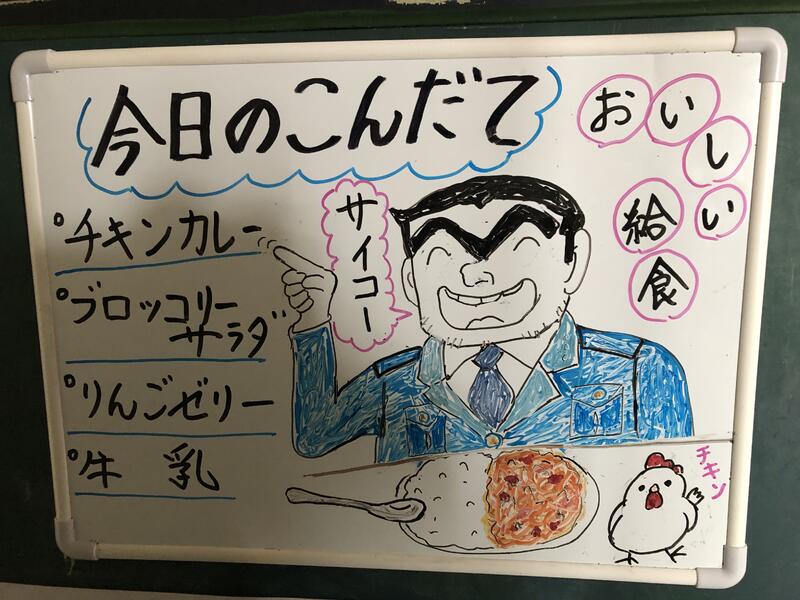 今日のこんだて
おいしい
給食
°チキンカレー
サイコー
°ブロッコリー
サラダ
°りんごゼリー
°牛乳
チキン